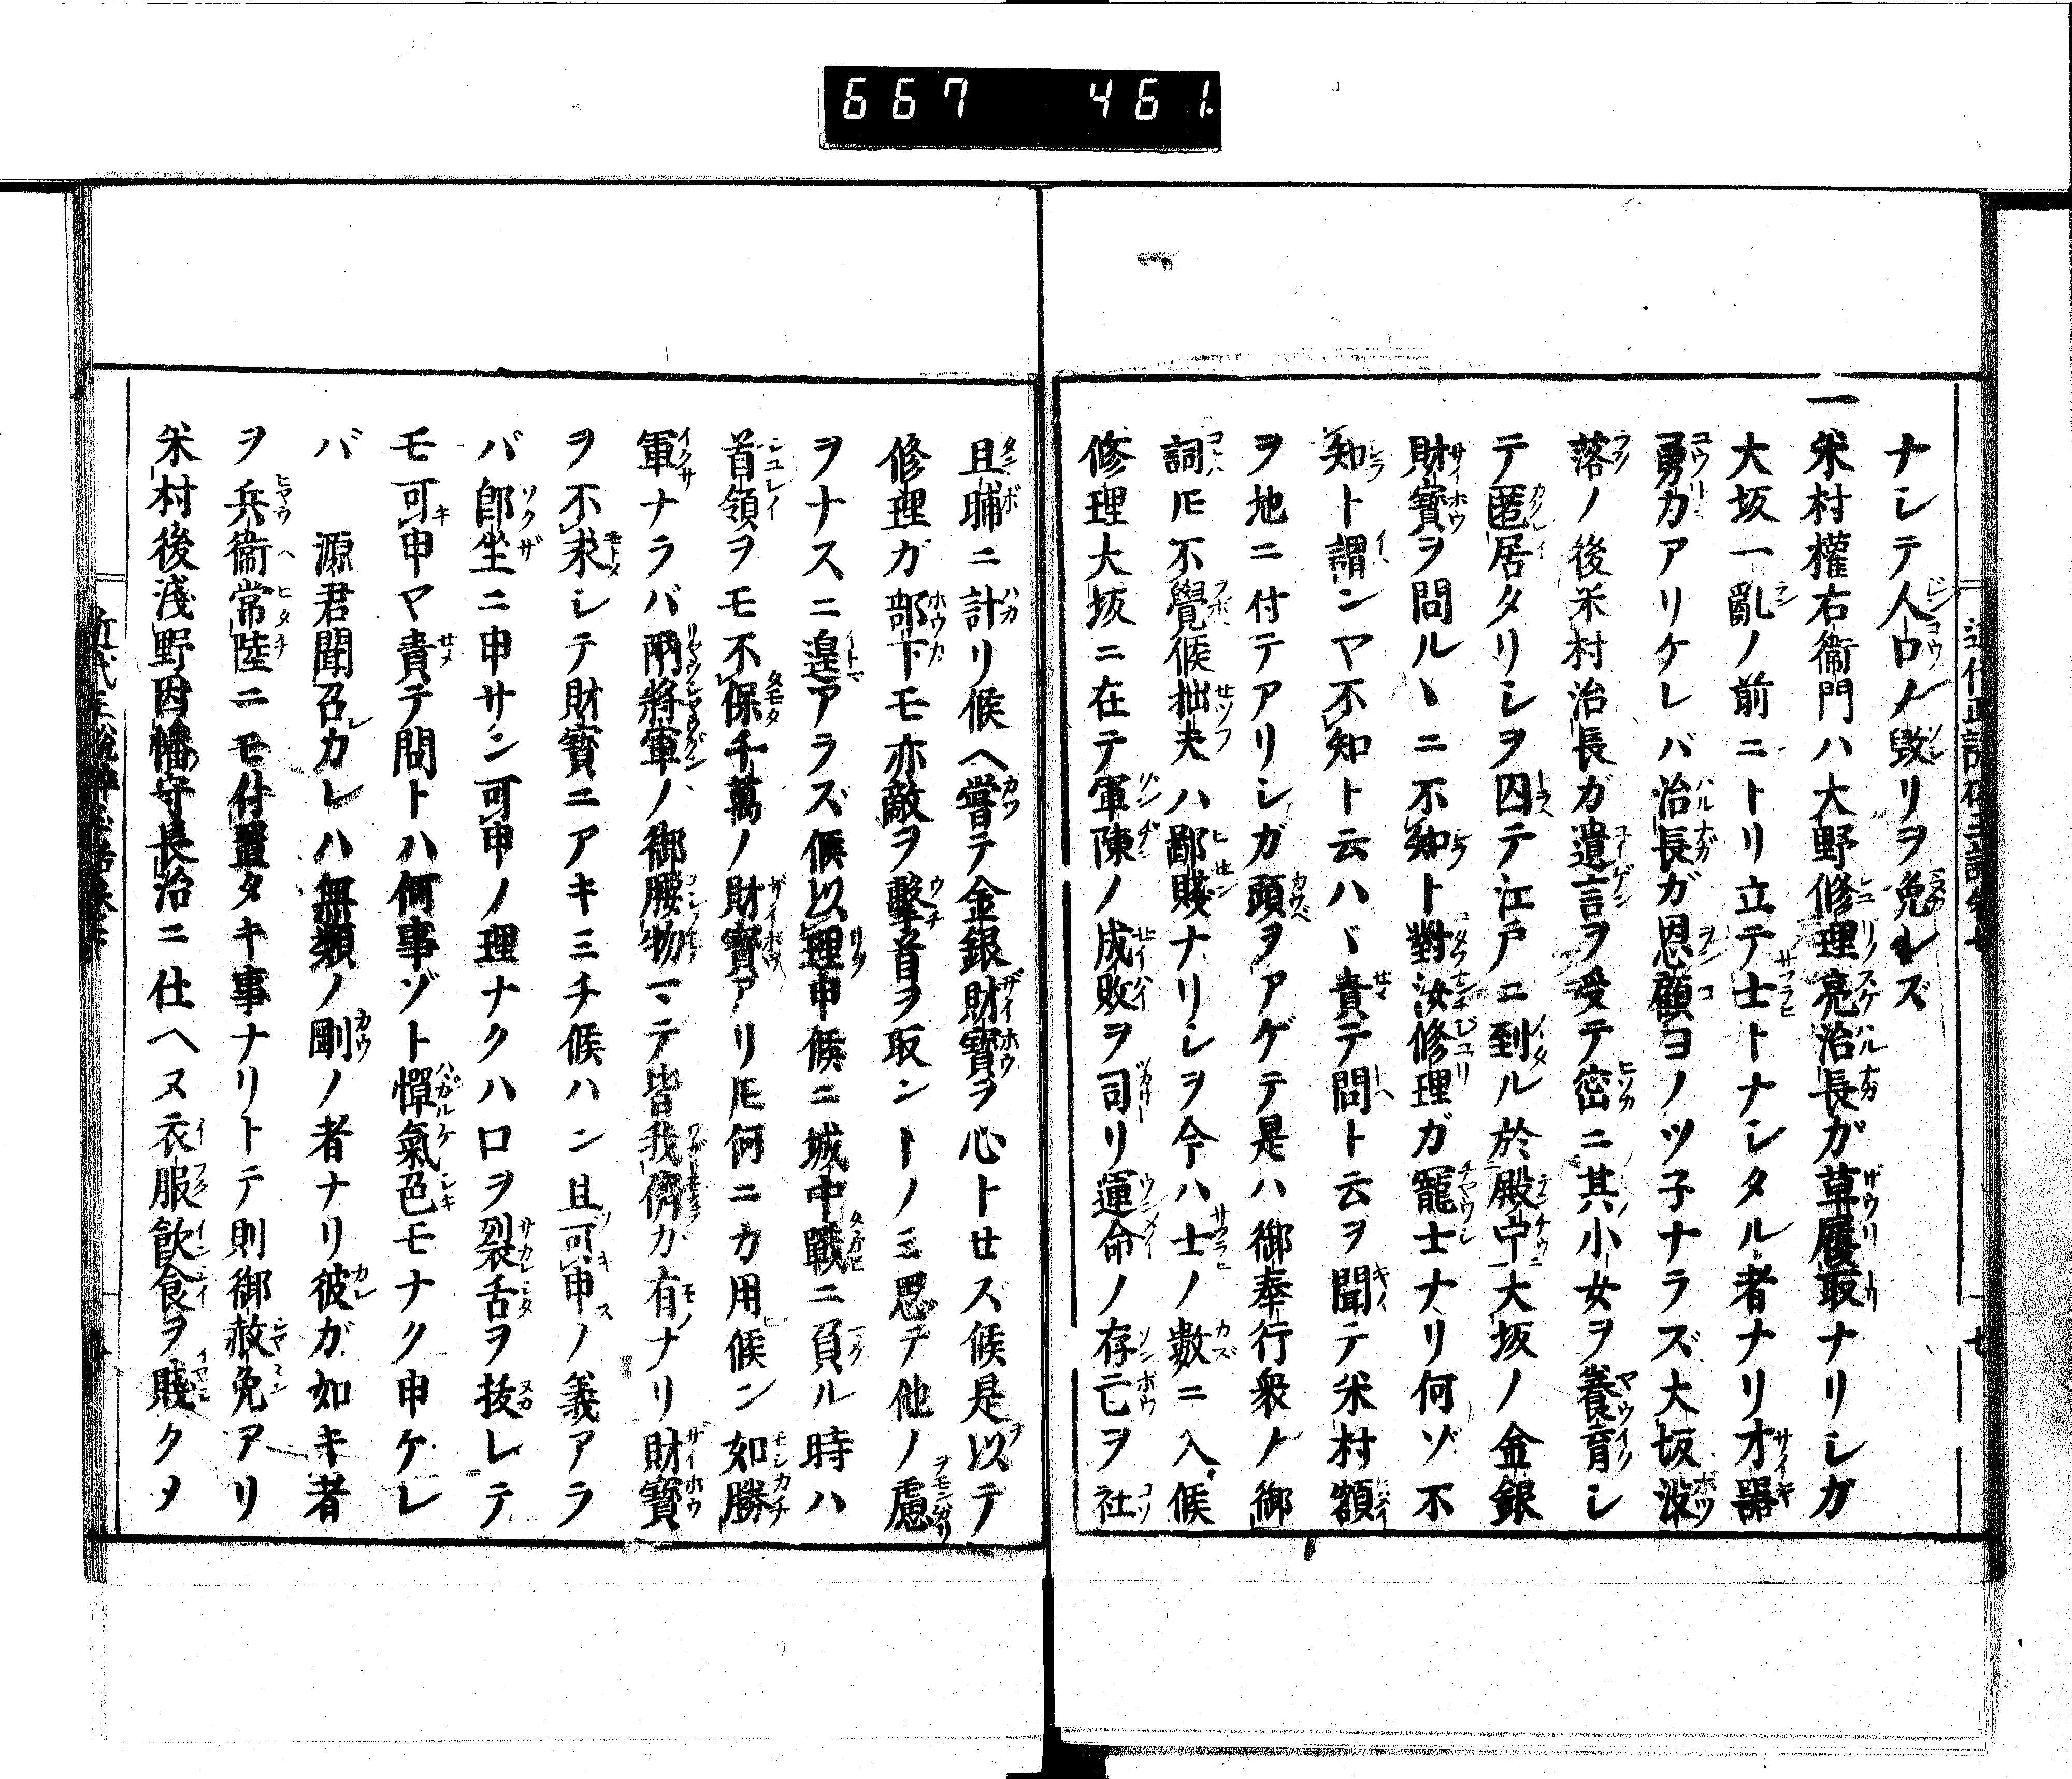 667 461
ナシテ人口ノ毀リヲ免レズ
一米村權右衞門ハ大野修理亮治長ガ草履取ナリシガ
大坂一亂ノ前ニトリ立テ士トナシタル者ナリ才器
勇力アリケレバ治長ガ恩顧ヨノツ子ナラズ大坂沒
落ノ後米村治長ガ遺言ヲ受テ密ニ其小女ヲ養育シ
テ匿居タリシヲ囚テ江戸ニ到ル於殿中大坂ノ金銀
財寳ヲ問ルヽニ不知ト對汝修理ガ寵士ナリ何ゾ不
知ト謂ンヤ不知ト云ハヾ責テ問ト云ヲ聞テ米村額
ヲ地ニ付テアリシガ頭ヲアゲテ是ハ御奉行衆ノ御
詞𪜈不覺候拙夫ハ鄙賤ナリシヲ今ハ士ノ數ニ入候
修理大坂ニ在テ軍陳ノ成敗ヲ司リ運命ノ存亡ヲ社
且晡ニ計リ候ヘ嘗テ金銀財寳ヲ心トセズ候是以テ
修理ガ部下モ亦敵ヲ擊首ヲ取ントノミ思テ他ノ慮
ヲナスニ遑アラズ候以理申候ニ城中戰ニ負ル時ハ
首領ヲモ不保千萬ノ財寳アリ𪜈何ニカ用候ン如勝
軍ナラバ兩將軍ノ御腰物ニテ皆我儕カ有ナリ財寳
ヲ不求シテ財寳ニアキミチ候ハン且可申ノ義アラ
バ郎坐ニ申サン可申ノ理ナクハ口ヲ裂舌ヲ抜レテ
モ可申ヤ責テ問トハ何事ゾト憚氣色モナク申ケレ
バ 源君聞召レカレハ無類ノ剛ノ者ナリ彼ガ如キ者
ヲ兵衞常陸ニモ付置タキ事ナリトテ則御赦免アリ
米村後淺野因幡守長治ニ仕ヘヌ衣服飮食ヲ賤クメ